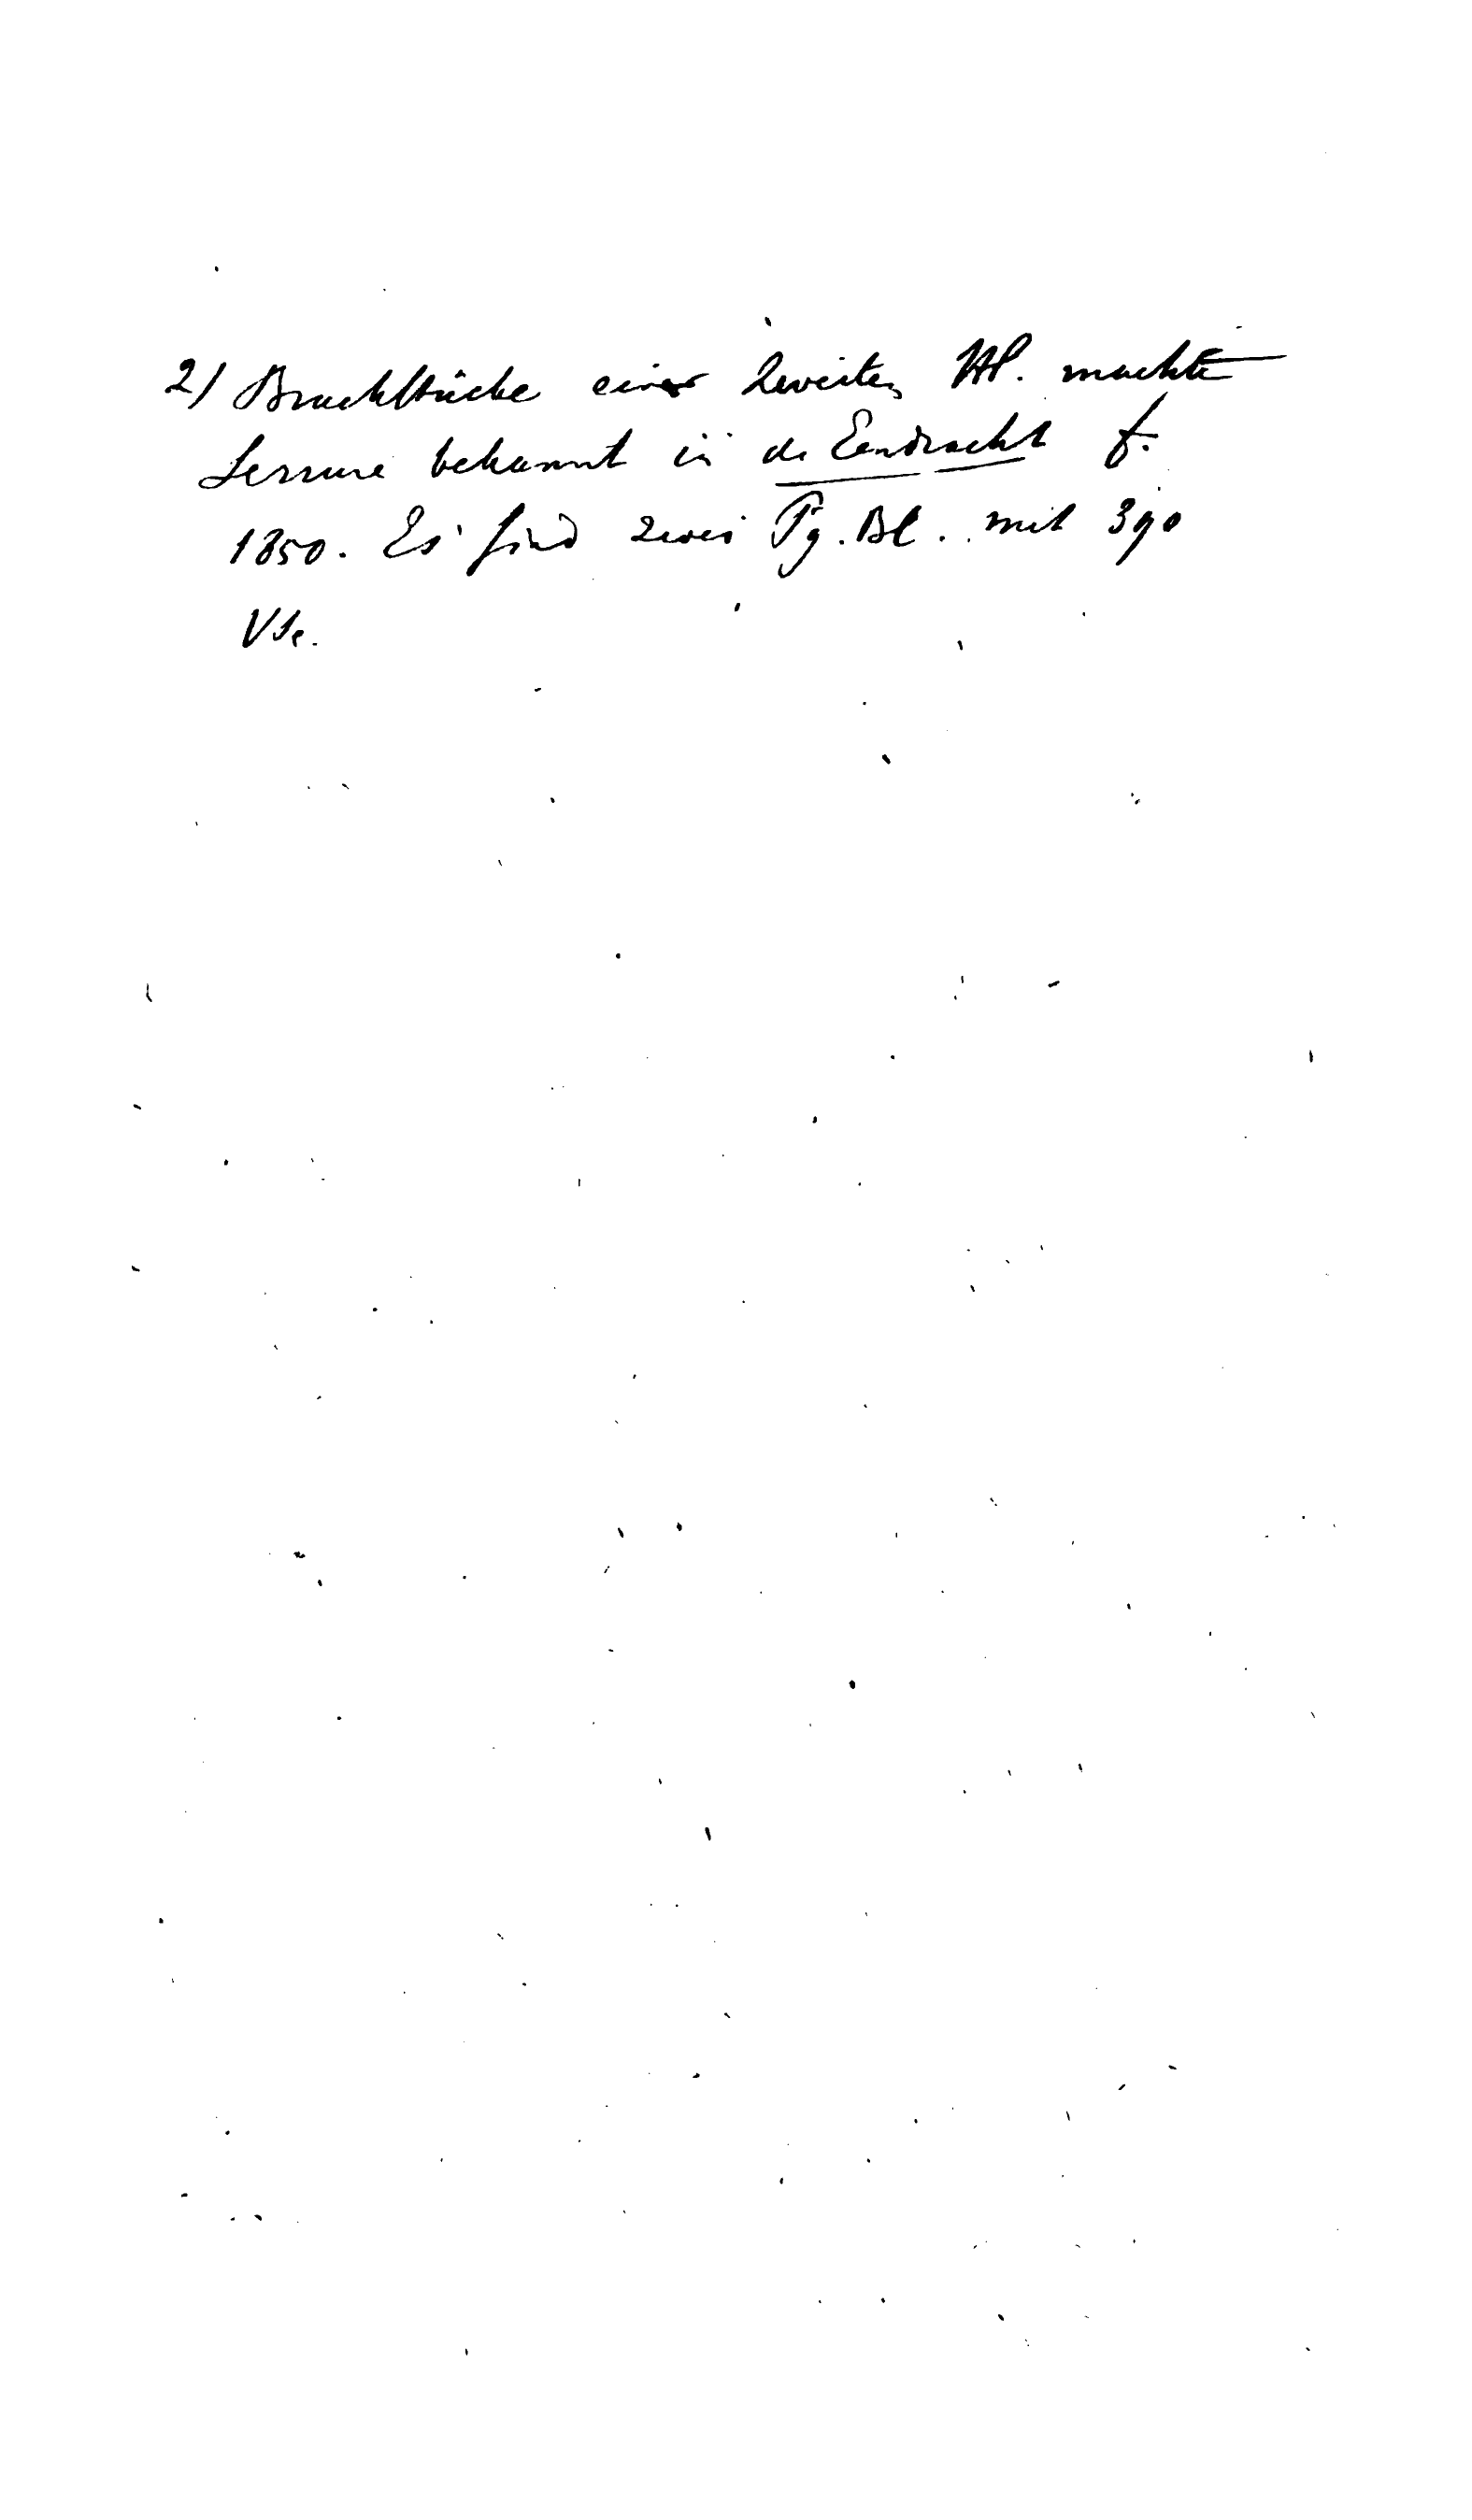 2) Bruchstücke einer zweiten Hs. machte
Serrure bekannt in de Eendracht f.
1850. Es sind zwei Pg. Bl. mit 390
Vse.